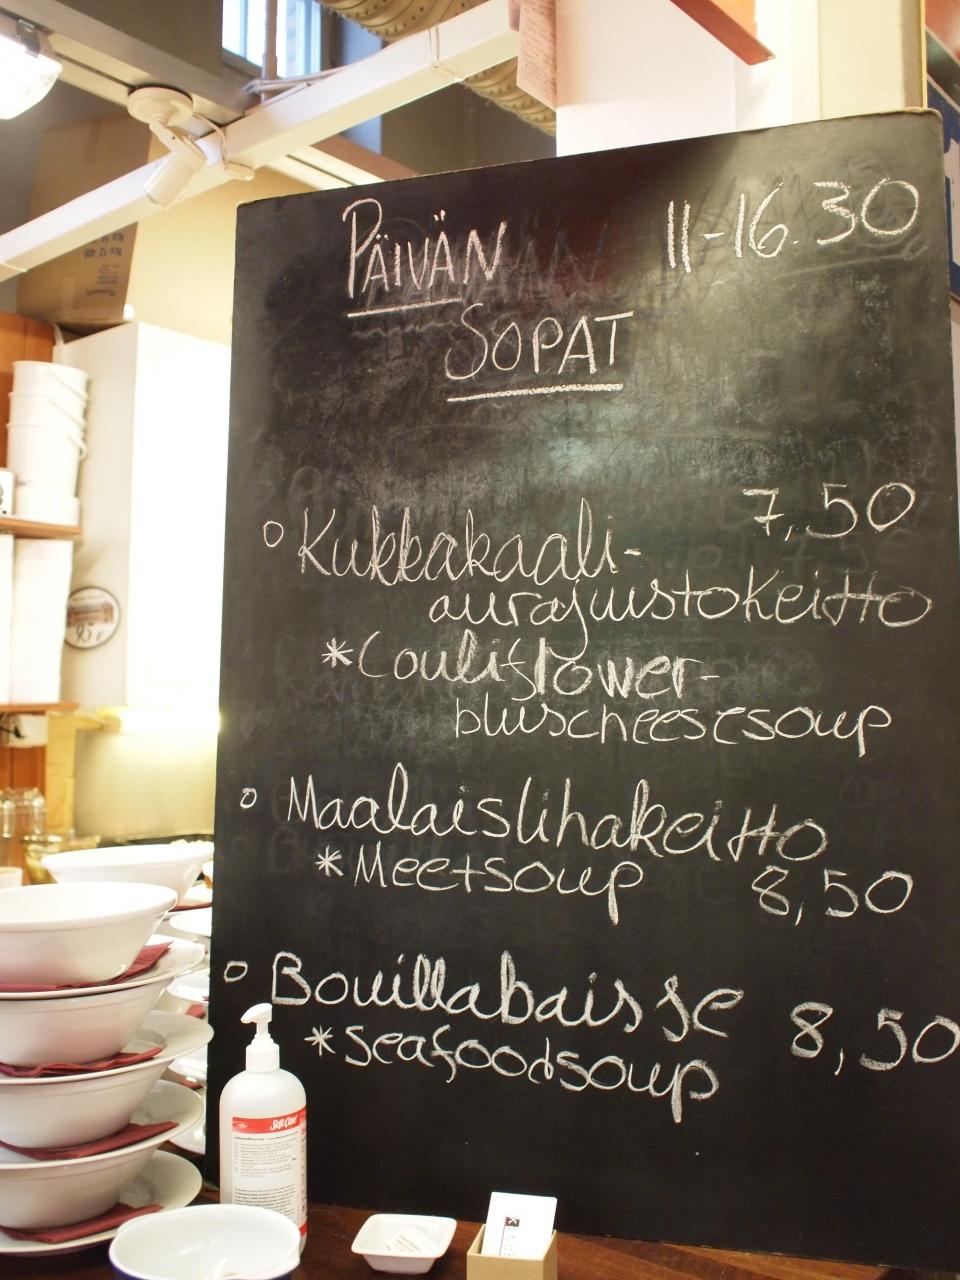 PÄIVÄN 11-16.30
SOPAT
7,50
Kukkakaali-
aurajuustokeitto
*Couliflower-
bluscheesesoup
Maalaislihakeitto
*Meetsoup 8,50
Bouillabaisse 8,50
*seafoodsoup
Soft Care
95